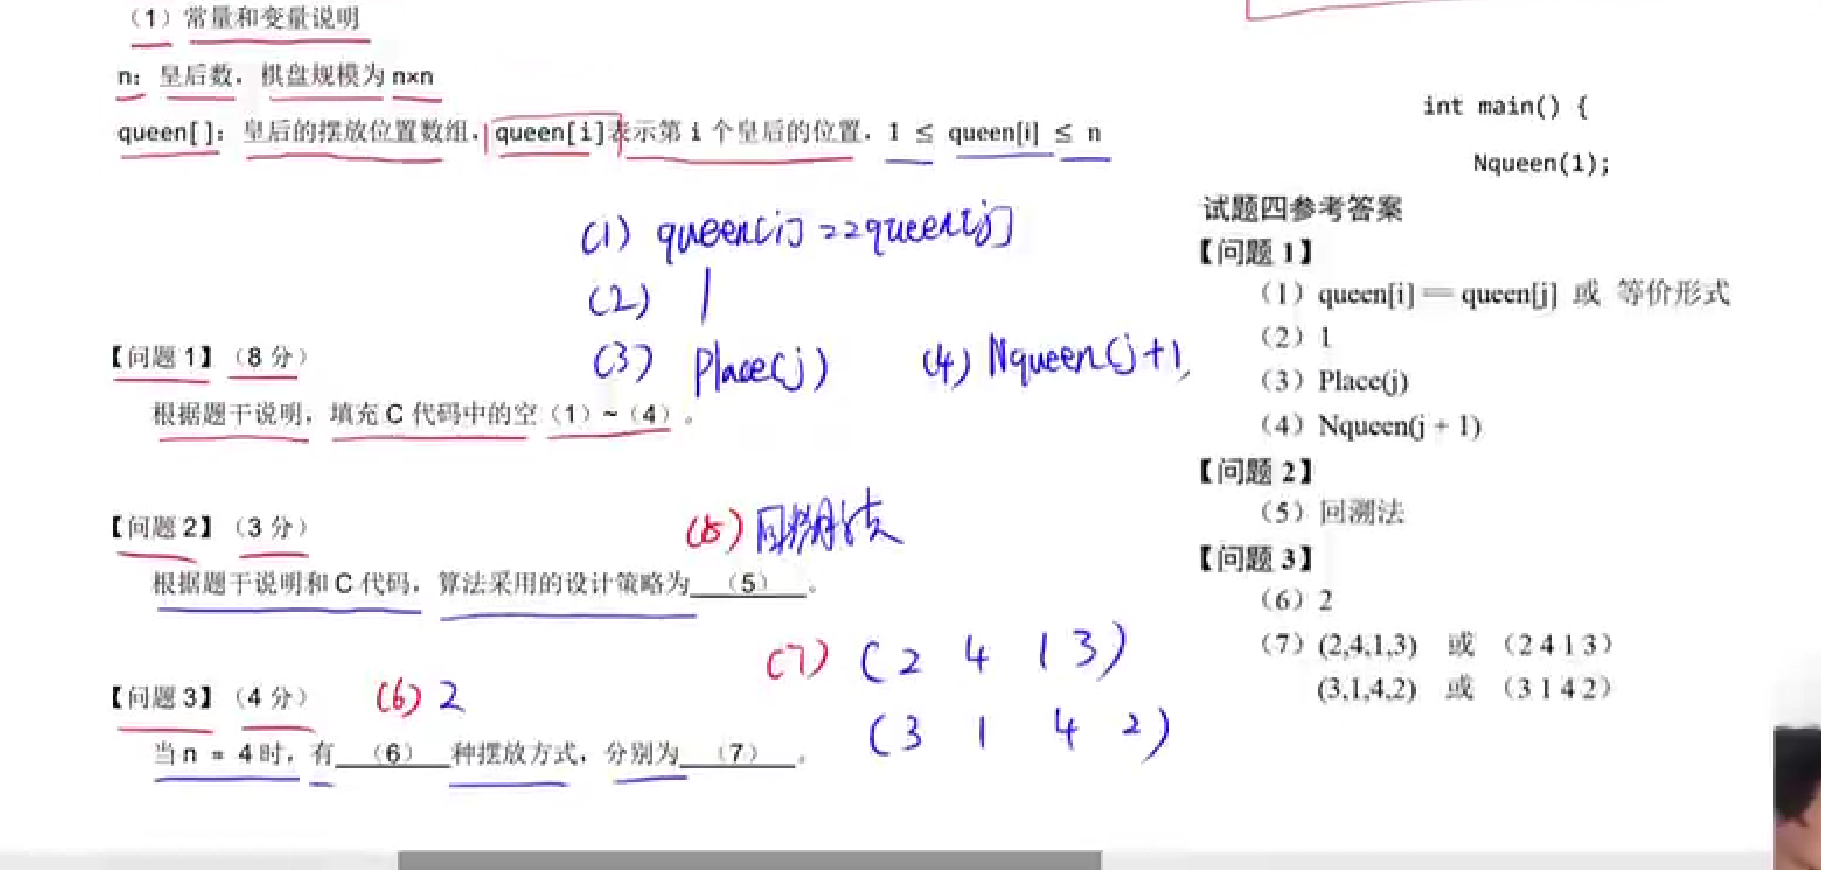 （1）常量和变量说明
n：皇后数，棋盘规模为 n×n
queen[]：皇后的摆放位置数组，queen[i]表示第 i 个皇后的位置，1 ≤ queen[i] ≤ n
(1) queen[i]==queen[j]
(2) 1
(3) Place(j) (4) Nqueen(j+1)
【问题 1】（8 分）
根据题干说明，填充 C 代码中的空（1）~（4）。
【问题 2】（3 分）
(5) 回溯法
根据题干说明和 C 代码，算法采用的设计策略为（5）。
【问题 3】（4 分）
(6) 2
(7) (2 4 1 3)
(3 1 4 2)
当 n = 4 时，有（6）种摆放方式，分别为（7）。
int main() {
Nqueen(1);
试题四参考答案
【问题 1】
（1）queen[i] == queen[j] 或 等价形式
（2）1
（3）Place(j)
（4）Nqueen(j + 1)
【问题 2】
（5）回溯法
【问题 3】
（6）2
（7）(2,4,1,3) 或 （2 4 1 3）
(3,1,4,2) 或 （3 1 4 2）